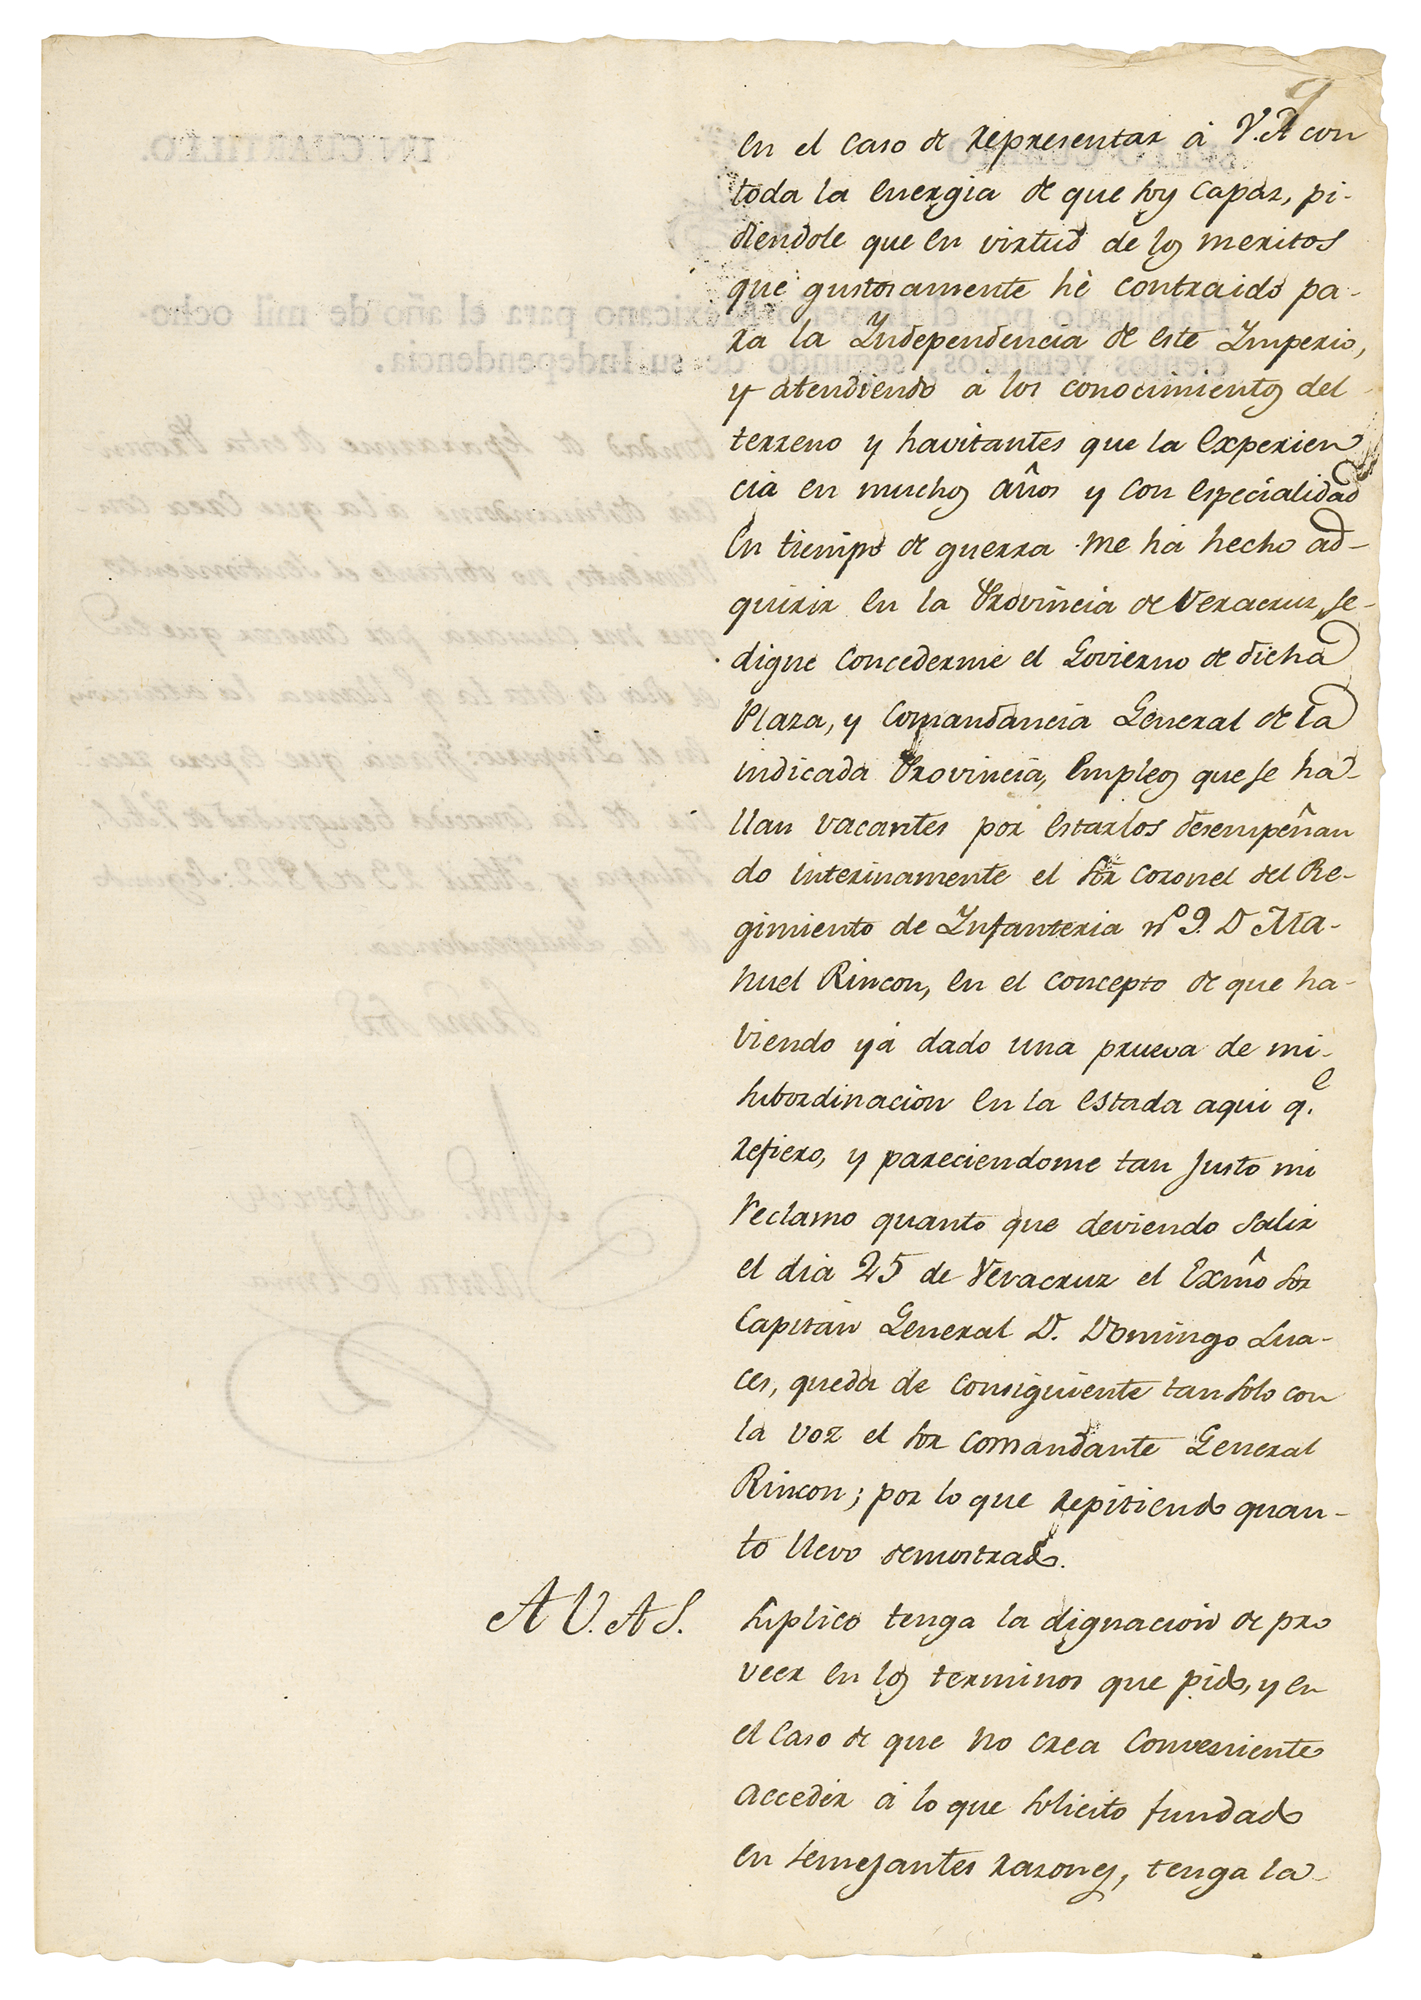 en el caso de representar á V.A con
toda la energia de que soy capaz, pi-
diendole que en virtud de los meritos
que gustosamente hé contraido pa-
ra la Independencia de este Imperio,
y atendiendo á los conocimientos del
terreno y havitantes que la experien
cia en muchos años y con especialidad
en tiempo de guerra me há hecho ad-
quirir en la Provincia de Veracruz, se
digne concederme el Govierno de dicha
Plaza, y Comandancia General de la
indicada Provincia, empleos que se ha-
llan vacantes por estarlos desempeñan
do interinamente el Sor Coronel del Re-
gimiento de Infanteria nº 9. D Ma-
nuel Rincon, en el concepto de que ha-
viendo yá dado una prueva de mi
subordinacion en la estada aqui q.e
refiero, y pareciendome tan justo mi
reclamo quanto que deviendo salir
el dia 25 de Veracruz el Exmô Sor
Capitán General D. Domingo Lua-
ces, queda de consiguiente tan solo con
la voz el Sor Comandante General
Rincon; por lo que repitiendo quan-
to llevo demostrado.
A V. A S. Suplico tenga la dignacion de pro
veer en los terminos que pido, y en
el caso de que no crea conveniente
acceder á lo que solicito fundado
en semejantes razones, tenga la